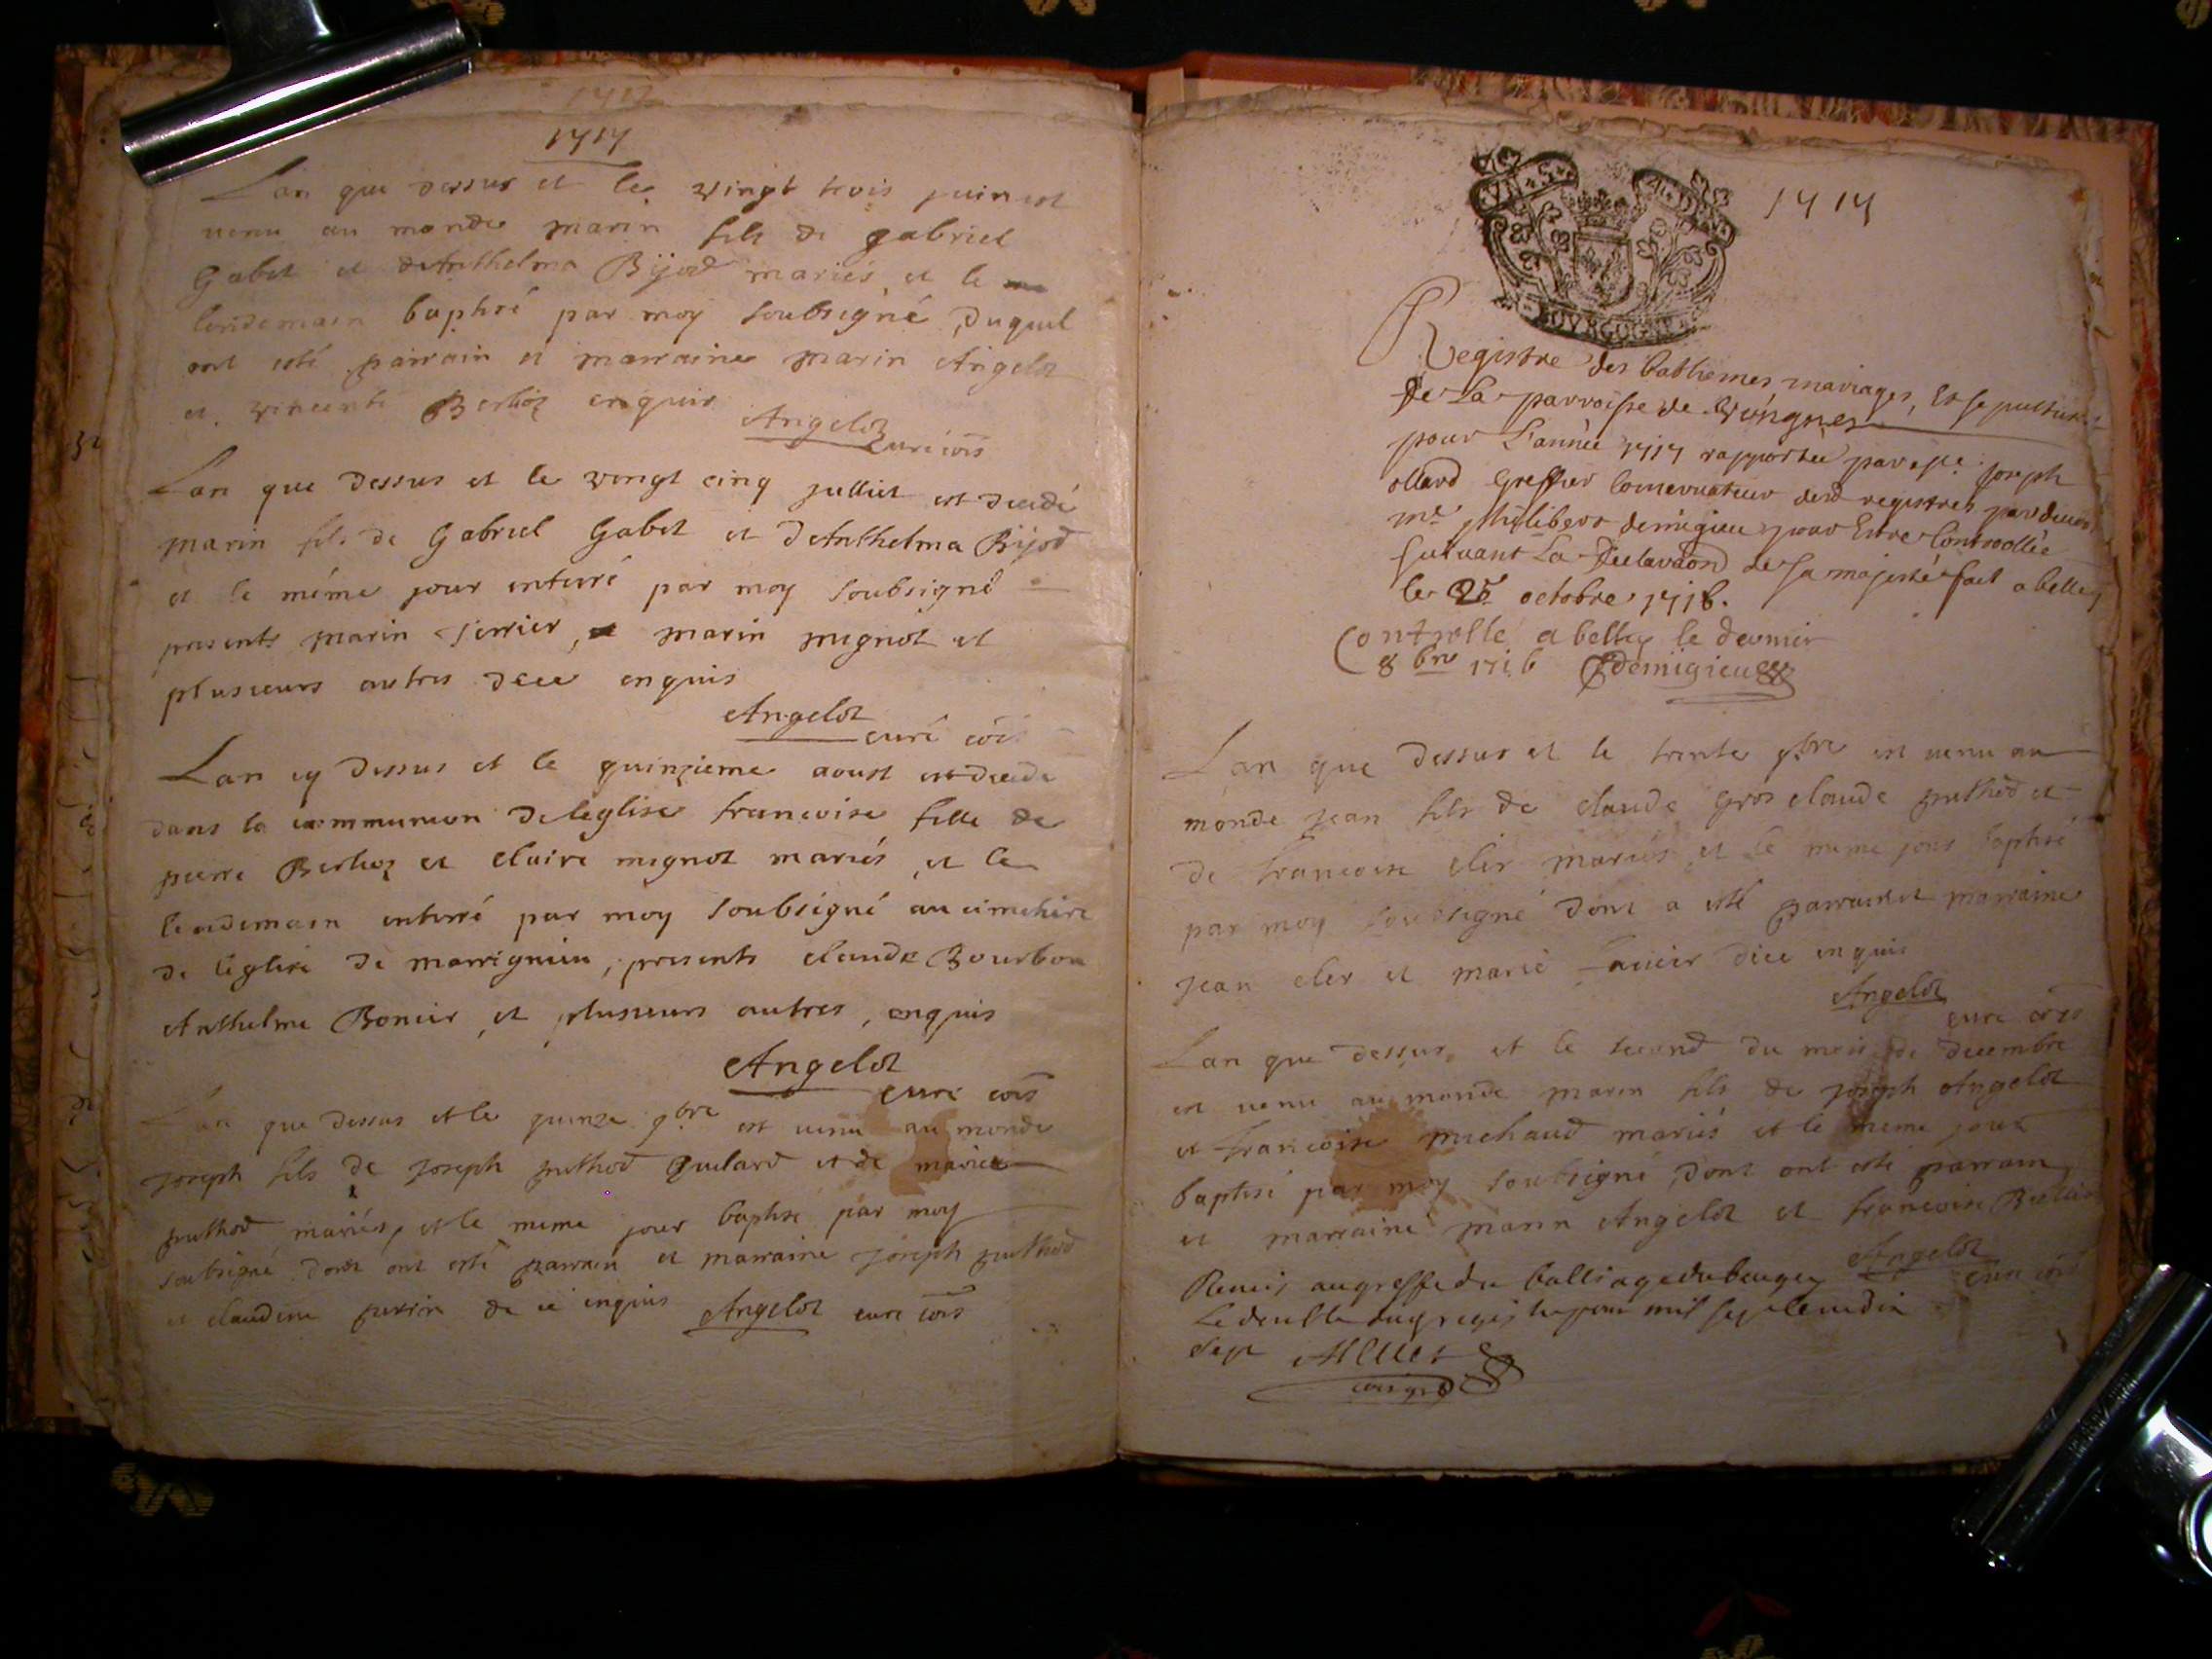 1717
Lan que dessus et le vingt trois juin est
venu au monde marin fils de gabriel
Gabet et dAnthelma Bijod mariés et le
lendemain baptisé par moy soubsigné, duquel
ont esté parrain et marraine marin Angelot
et vincente Berlioz enquis
Angelot
curé cois
Lan que dessus et le vingt cinq julliet est decedé
marin fils de Gabriel Gabet et dAnthelma Bijod
et le méme jour enterré par moy soubsigné
presents marin serrier, marin mignot et
plusieurs autres de ce enquis
Angelot
curé cois
Lan cy dessus et le quinzieme aoust est decede
dans la communion de leglise francoise fille de
pierre Berlioz et claire mignot mariés, et le
lendemain enterré par moy soubsigné au cimetiere
de léglise de marrignieu, presents claude Bourbon
Anthelme Bonier, et plusieurs autres, enquis
Angelot
curé cois
Lan que dessus et le quinze 9bre est venu au monde
Joseph fils de Joseph puthod Quilard et de marie
puthod mariés, et le meme jour baptisé par moy
soubsigné dont ont esté parrain et marraine Joseph puthod
et claudine perrin de ce enquis Angelot curé cois
1717
BOURGOGNE
Registre des bathemes mariages, Et sepultures
de La parroisse de Vongnes
pour L'année 1717 rapportée par Joseph
ollard Greffier Conservateur desd registres pardevant
me philibert demigieu pour Estre Controollée
suivant La declaraon de sa majesté fait a belley
le 25 octobre 1716.
Controlle a belley le dernier
8bre 1716 demigieu
Lan que dessus et le trente 9bre est venu au
monde jean fils de claude Gros claude puthod et
de francoise cler mariés et le meme jour baptisé
par moy soubsigné dont a esté parrain et marraine
Jean cler et marie de ce enquis
Angelot
curé cois
Lan que dessus et le second du mois de decembre
est venu au monde marin fils de Joseph Angelot
et francoise michaud mariés et le meme jour
baptisé par moy soubsigné, dont ont esté parrain
et marraine marin Angelot et francoise
Angelot
curé cois
Remis au greffe du balliage du beugey
Le double du pnt registre pour mil sept cent dix
sept